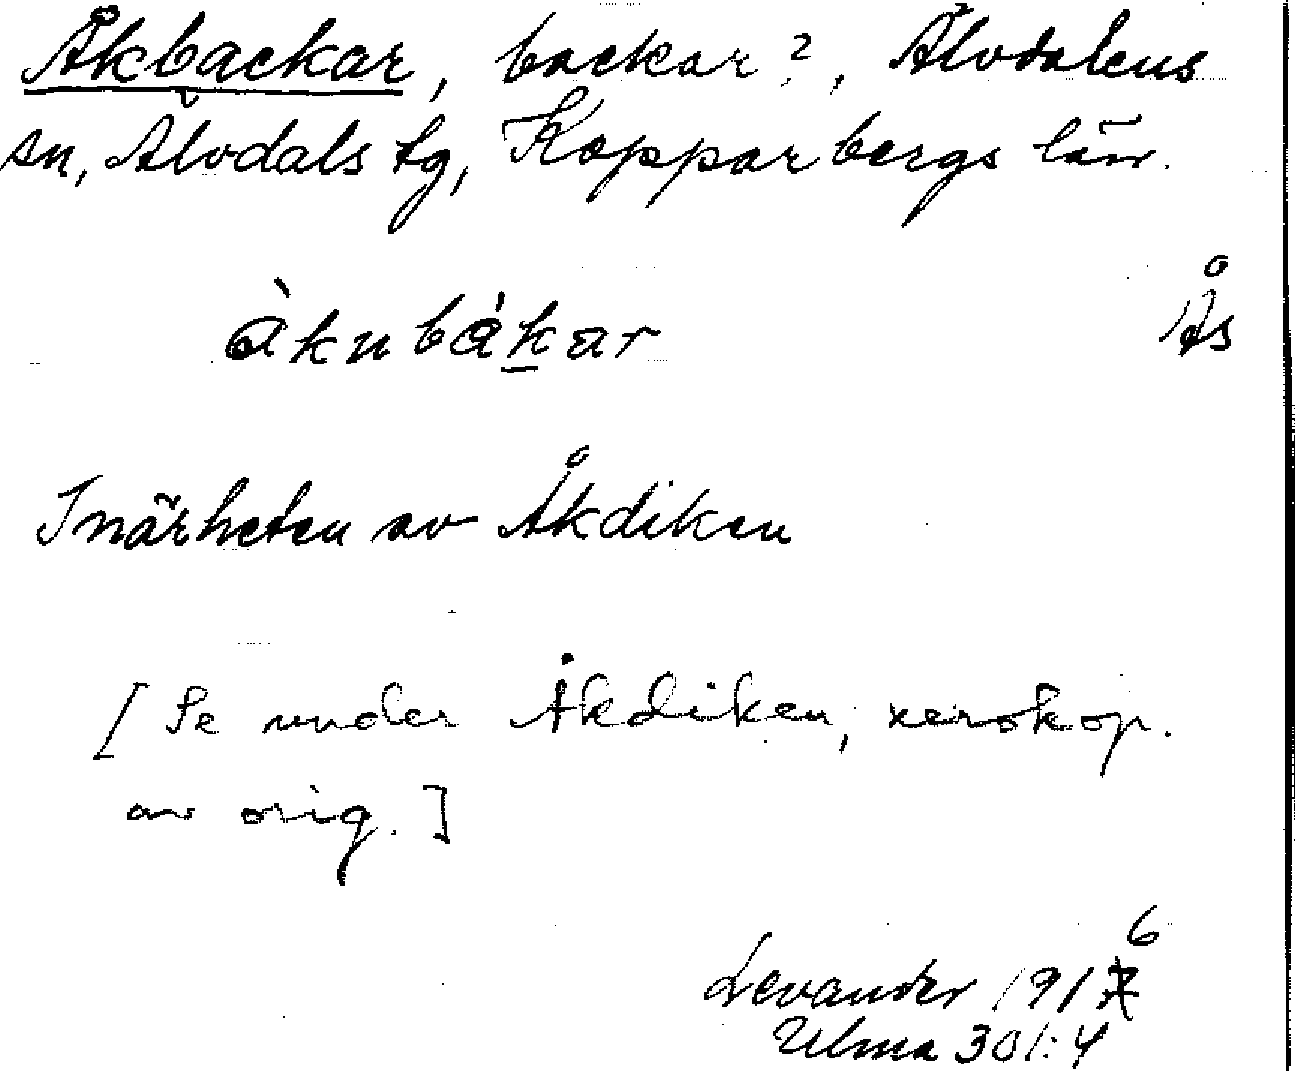 Åkbackar, backar?, Älvdalens
sn, Älvdals tg, Kopparbergs län.
àknbákar
Ås
I närheten av Åkdiken
[Se under Åkdiken, xerokop.
av orig.]
6
Levander 1917
Ulma 301:4